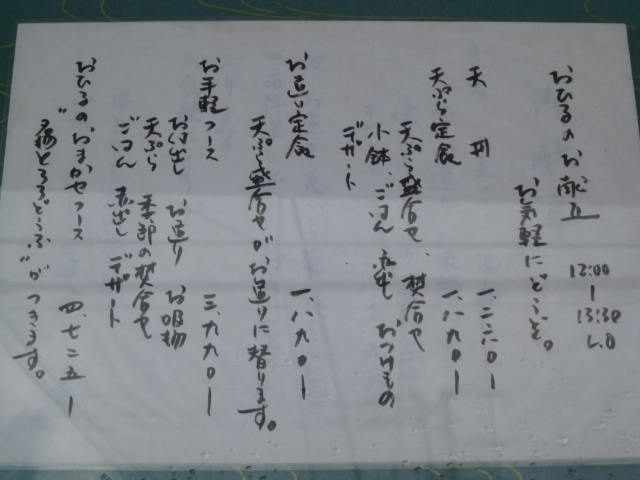 おひるのお献立
12:00
|
13:30
L.O
お気軽にどうぞ。
天丼 一、二六〇ー
天ぷら定食 一、八九〇ー
天ぷら盛合せ、焚合せ
小鉢、ごはん 赤出し おつけもの
デザート
お造り定食 一、八九〇ー
天ぷら盛合せがお造りに替ります。
お手軽コース 三、九九〇ー
お付出し お造り お吸物
天ぷら 季節の焚合せ
ごはん 赤出し デザート
おひるのおまかせコース 四、七二五ー
"名物とろろどうふ"がつきます。